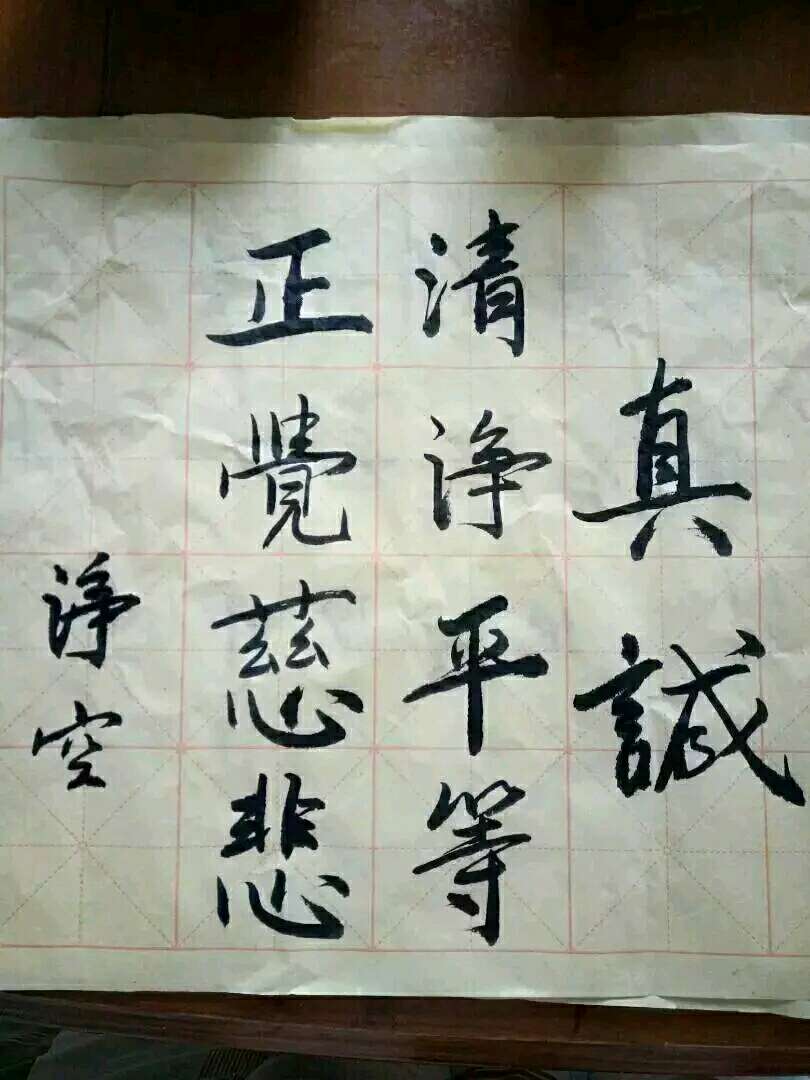 真誠
清淨平等
正覺慈悲
淨空